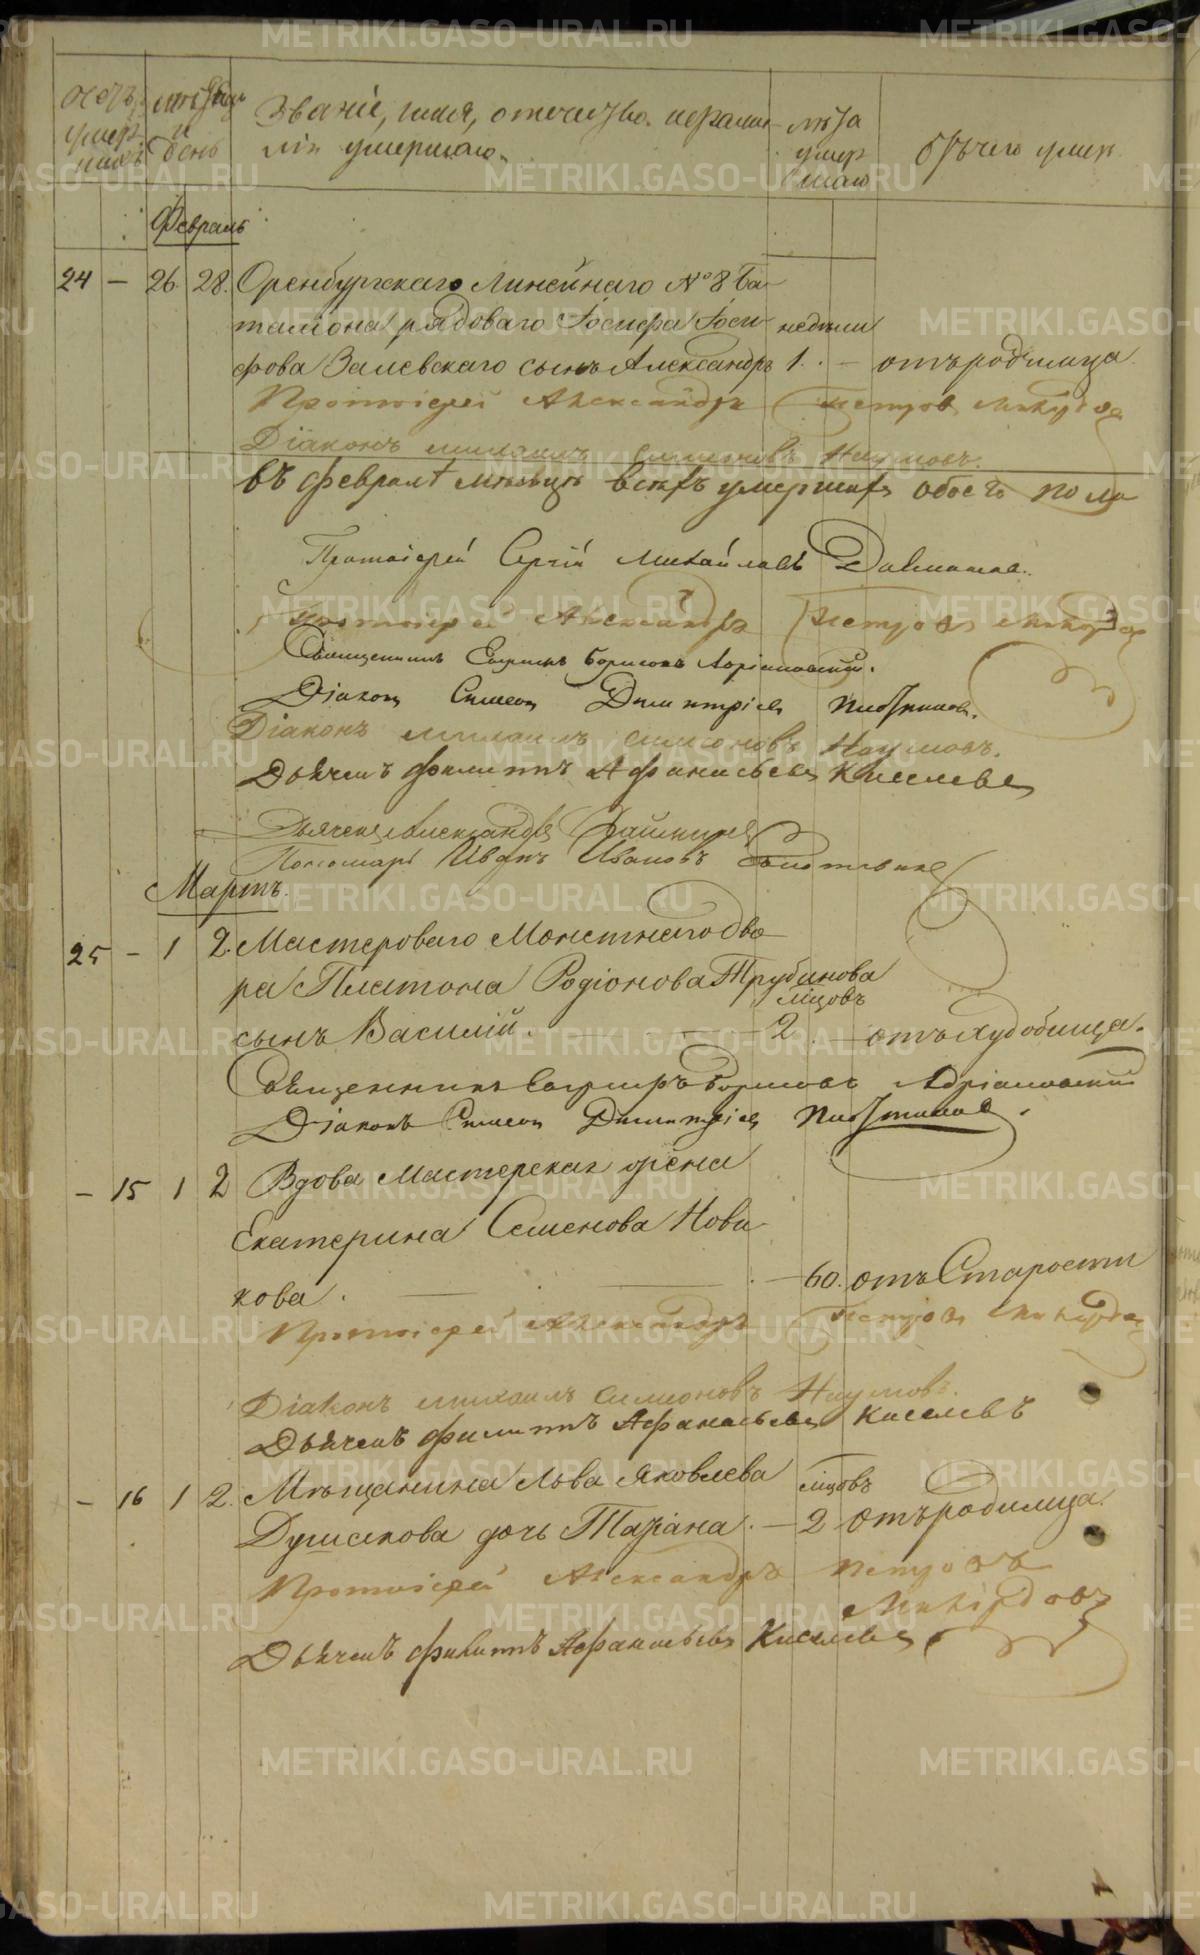 Счетъ умер- шихъ
Мѣсяцъ и день
Званіе, имя, отечество и фами-
лія умершаго.
Лѣта умер шаго
Отъ чего умер.
Февраль
24 — 26. 28. Оренбургскаго Линейнаго № 8 Ба-
таліона рядоваго Іосифа Іоси- недѣли
фова Залевскаго сынъ Александръ 1. — отъ родимца
Протоіерей Александръ Петровъ
Діаконъ Михаилъ Симеоновъ Наумовъ.
въ февралѣ мѣсяцѣ всехъ умершихъ обоего пола
Протоіерей Сергій Михайловъ
Протоіерей Александръ Петровъ
Священникъ Борисовъ Адріановскій.
Діаконъ Симеон Димитріев
Діаконъ Михаилъ Симеоновъ Наумовъ.
Дьячекъ Филиппъ Афанасьевъ Киселевъ
Дьячекъ Александръ
Пономарь Иванъ Ивановъ
Мартъ.
25 — 1 2. Мастероваго Монетнаго дво-
ра Платона Родіонова Трубинова
мѣсцовъ
сынъ Василій. — 2. — отъ худобища.
Священникъ Борисовъ Адріановскій
Діаконъ Симеон Димитріев
— 15 1 2 Вдова Мастерская жена
Екатерина Семенова Нови-
кова. — 60. отъ Старости
Протоіерей Александръ Петровъ
Діаконъ Михаилъ Симеоновъ Наумовъ.
Дьячекъ Филиппъ Афанасьевъ Киселевъ
— 16 1 2. Мѣщанина Льва Яковлева мѣсцовъ
дочь Татіана. — 2 отъ родимца.
Протоіерей Александръ Петровъ
Дьячекъ Филиппъ Афанасьевъ Киселевъ
METRIKI.GASO-URAL.RU